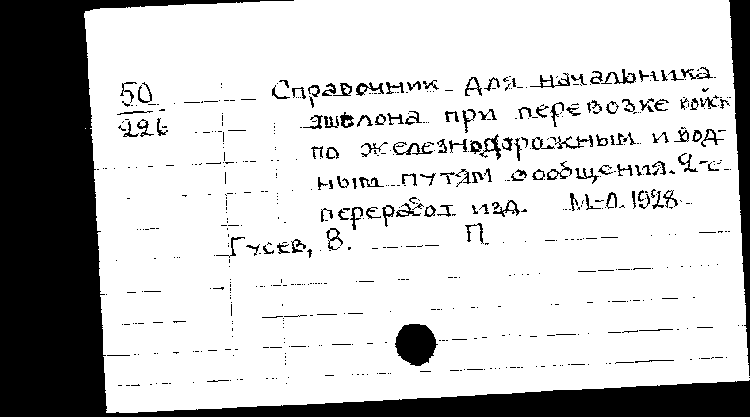 50
226
Справочник для начальника
эшелона при перевозке войск
по железнодорожным и вод-
ным путям сообщения. 2-е
переработ изд. М-Л. 1928
Гусев, В. П